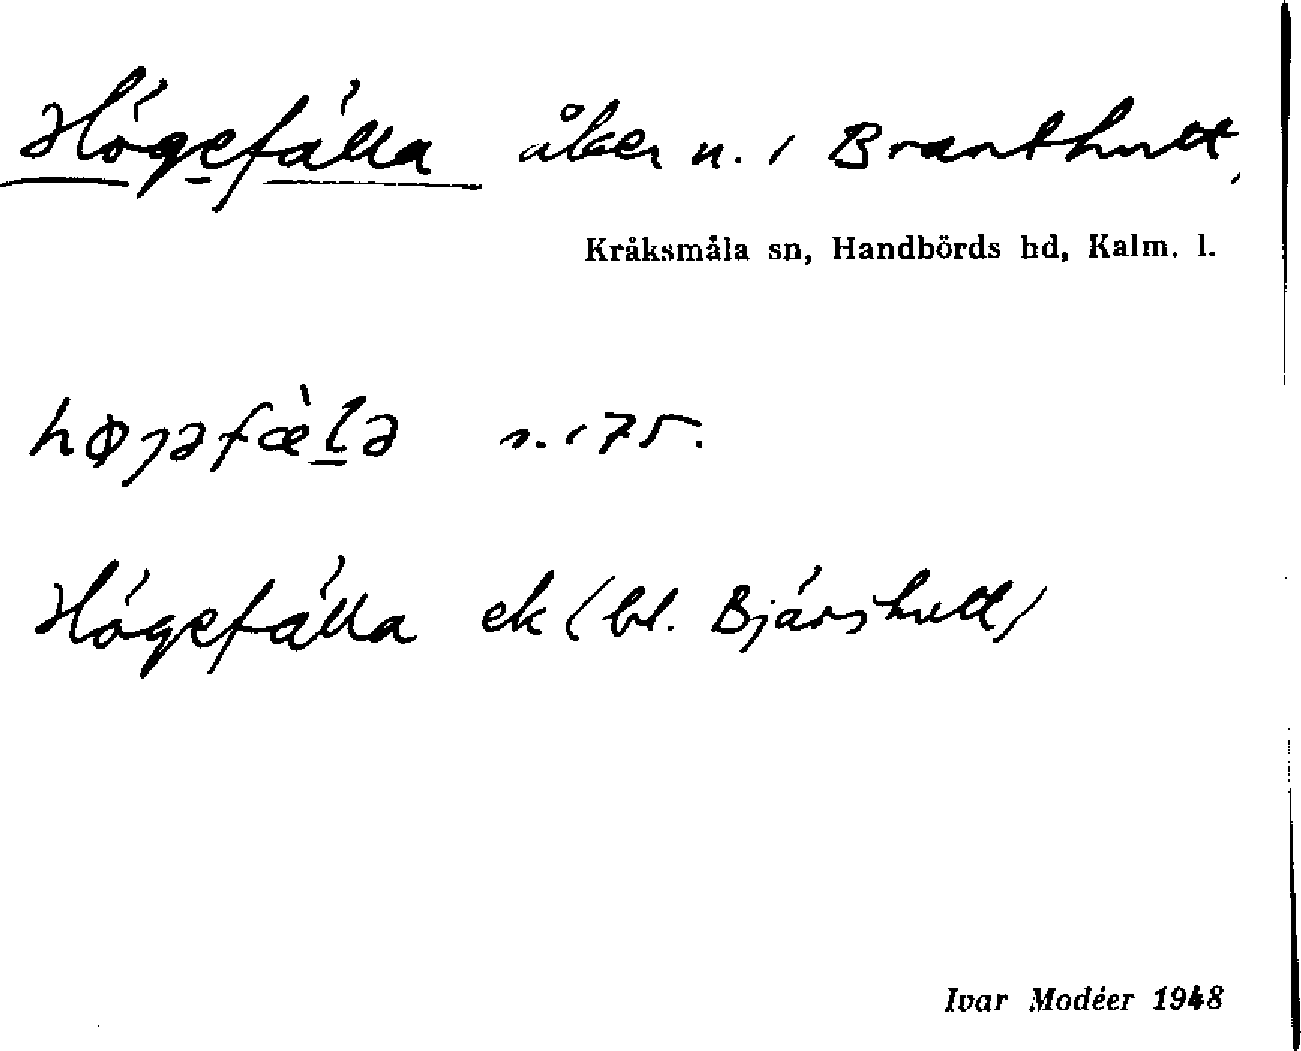 Högefälla åker n. i Branthult,
Kråksmåla sn, Handbörds hd, Kalm. l.
høgəfæ̀lə s. 175.
Högefälla ek (bl. Bjärshult)
Ivar Modéer 1948